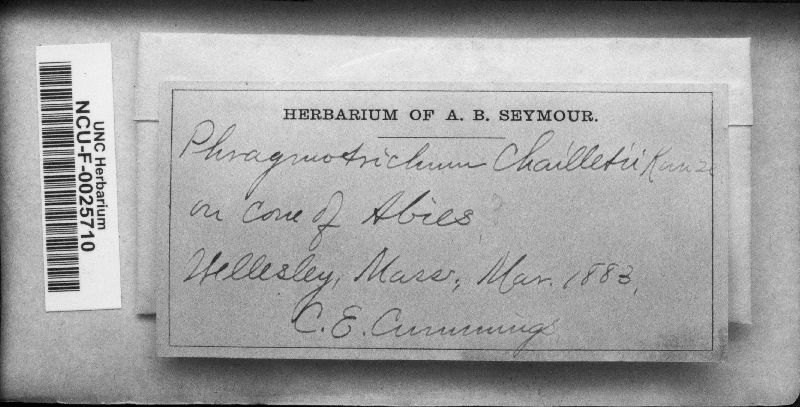 UNC Herbarium
NCU-F-0025710
HERBARIUM OF A. B. SEYMOUR.
Phragmotrichum Chailletii Kunze
on cone of Abies ?
Wellesley, Mass., Mar. 1883,
C. E. Cummings